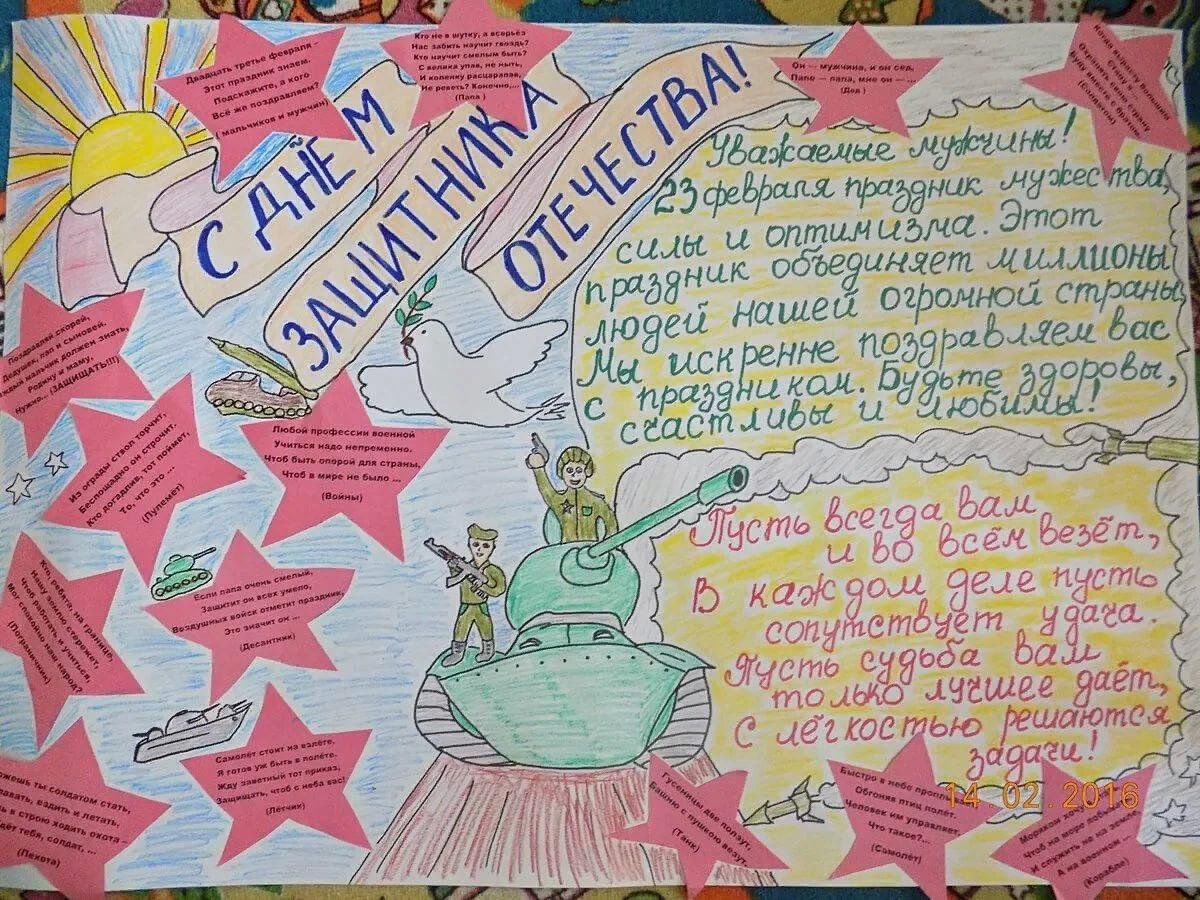 С ДНЁМ
ЗАЩИТНИКА
ОТЕЧЕСТВА!
Двадцать третье февраля -
Этот праздник знаем.
Подскажите, а кого
Всё же поздравляем?
( мальчиков и мужчин)
Кто не в шутку, а всерьёз
Нас забить научит гвоздь?
Кто научит смелым быть?
С велика упав, не ныть,
И коленку расцарапав,
Не реветь? Конечно,...
(Папа )
Он — мужчина, и он сед,
Папе — папа, мне он — ...
(Дед )
Когда вырасту большим
Охранять я
(Солдатом)
Уважаемые мужчины!
23 февраля праздник мужества,
силы и оптимизма. Этот
праздник объединяет миллионы
людей нашей огромной страны,
Мы искренне поздравляем вас
с праздником. Будьте здоровы,
счастливы и любимы!
Поздравляй скорей,
Дедушек, пап и сыновей.
мальчик должен знать,
Родину и маму,
Нужно... (ЗАЩИЩАТЬ!!!)
Из ограды ствол торчит,
Беспощадно он строчит.
Кто догадлив, тот поймет,
То, что это ...
(Пулемёт)
Любой профессии военной
Учиться надо непременно.
Чтоб быть опорой для страны,
Чтоб в мире не было ...
(Войны)
Кто, ребята, на границе,
Нашу землю стережет,
Чтоб работать и учиться,
Мог спокойно наш народ?
(Пограничник)
Если папа очень смелый,
Защитит он всех умело,
Воздушных войск отметит праздник,
Это значит он ...
(Десантник)
Пусть всегда вам
и во всём везёт,
В каждом деле пусть
сопутствует удача.
Пусть судьба вам
только лучшее даёт,
С лёгкостью решаются
задачи!
ты солдатом стать,
ездить и летать,
в строю ходить охота -
тебя, солдат, ...
(Пехота)
Самолёт стоит на взлёте,
Я готов уж быть в полёте.
Жду заветный тот приказ,
Защищать, чтоб с неба вас!
(Лётчик)
Гусеницы две ползут,
Башню с пушкою везут.
(Танк)
Быстро в небе
Обгоняя птиц полёт.
Человек им управляет.
Что такое?..
(Самолёт)
Моряком
Чтоб на море
И служить не на земле,
А на военном ...
(Корабле)
14.02.2016